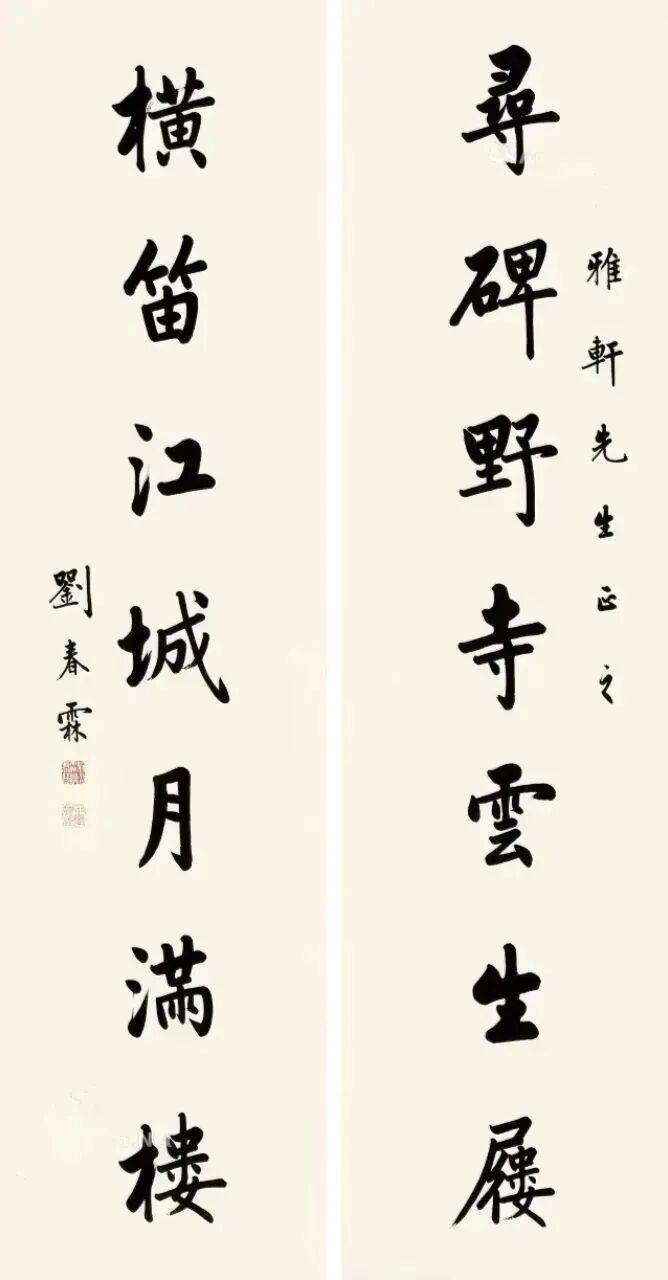 雅軒先生正之
尋碑野寺雲生屨
橫笛江城月滿樓
劉春霖